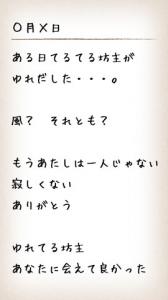 〇月×日
ある日てるてる坊主が
ゆれだした・・・。
風？　それとも？
もうあたしは一人じゃない
寂しくない
ありがとう
ゆれてる坊主
あなたに会えて良かった